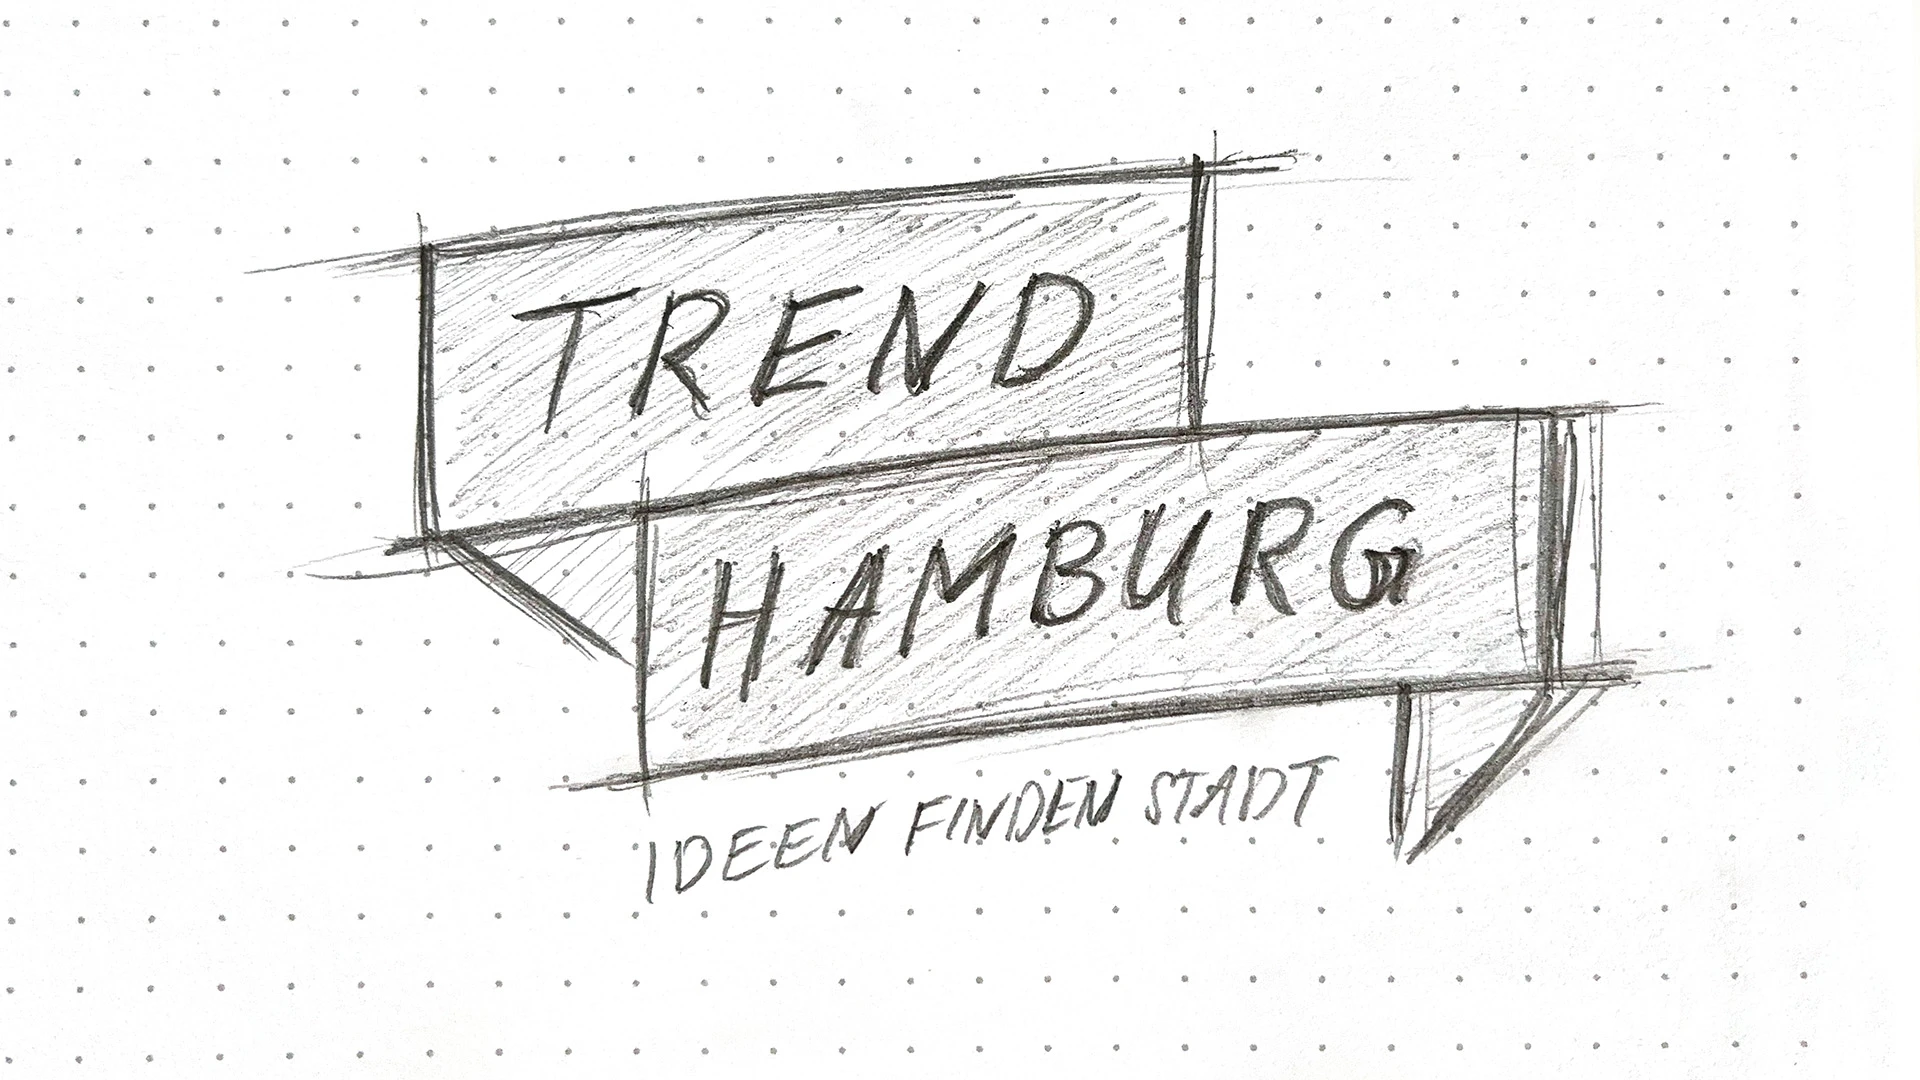 TREND
HAMBURG
IDEEN FINDEN STADT